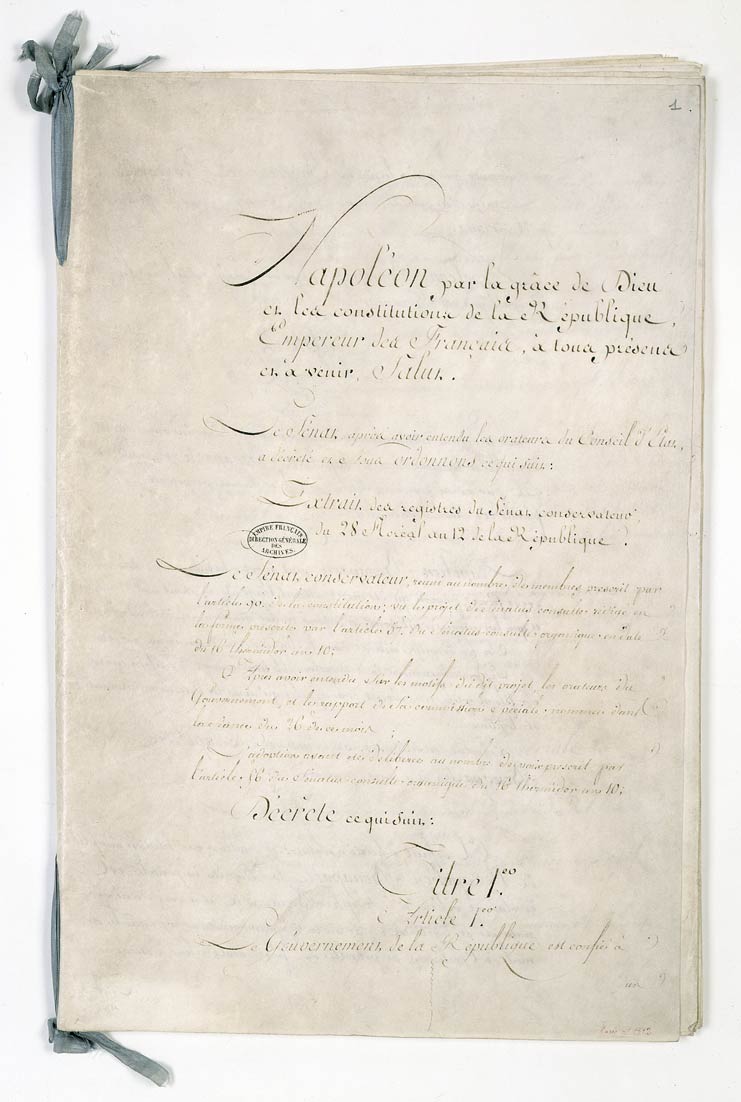 1
Napoléon par la grâce de Dieu
et les constitutions de la République,
Empereur des Français, à tous présens
et à venir, Salut.
Le Sénat, après avoir entendu les orateurs du Conseil d'Etat,
a décrété et nous ordonnons ce qui suit:
Extrait des registres du Sénat conservateur,
du 28 floréal an 12 de la République.
EMPIRE FRANÇAIS
DIRECTION GÉNÉRALE
DES
ARCHIVES.
Le Sénat conservateur, réuni au nombre de membres prescrit par
l'article 90 de la constitution; vu le projet de sénatus-consulte rédigé en
la forme prescrite par l'article 57 du Sénatus-consulte organique en date
du 16 thermidor an 10;
Après avoir entendu sur les motifs dudit projet, les orateurs du
Gouvernement, et le rapport de sa commission spéciale nommée dans
la séance du 26 de ce mois;
L'adoption ayant été délibérée au nombre de voix prescrit par
l'article 56 du Sénatus-consulte organique du 16 thermidor an 10;
Décrète ce qui suit:
Titre 1.er
Article 1.er
Le Gouvernement de la République est confié à
un